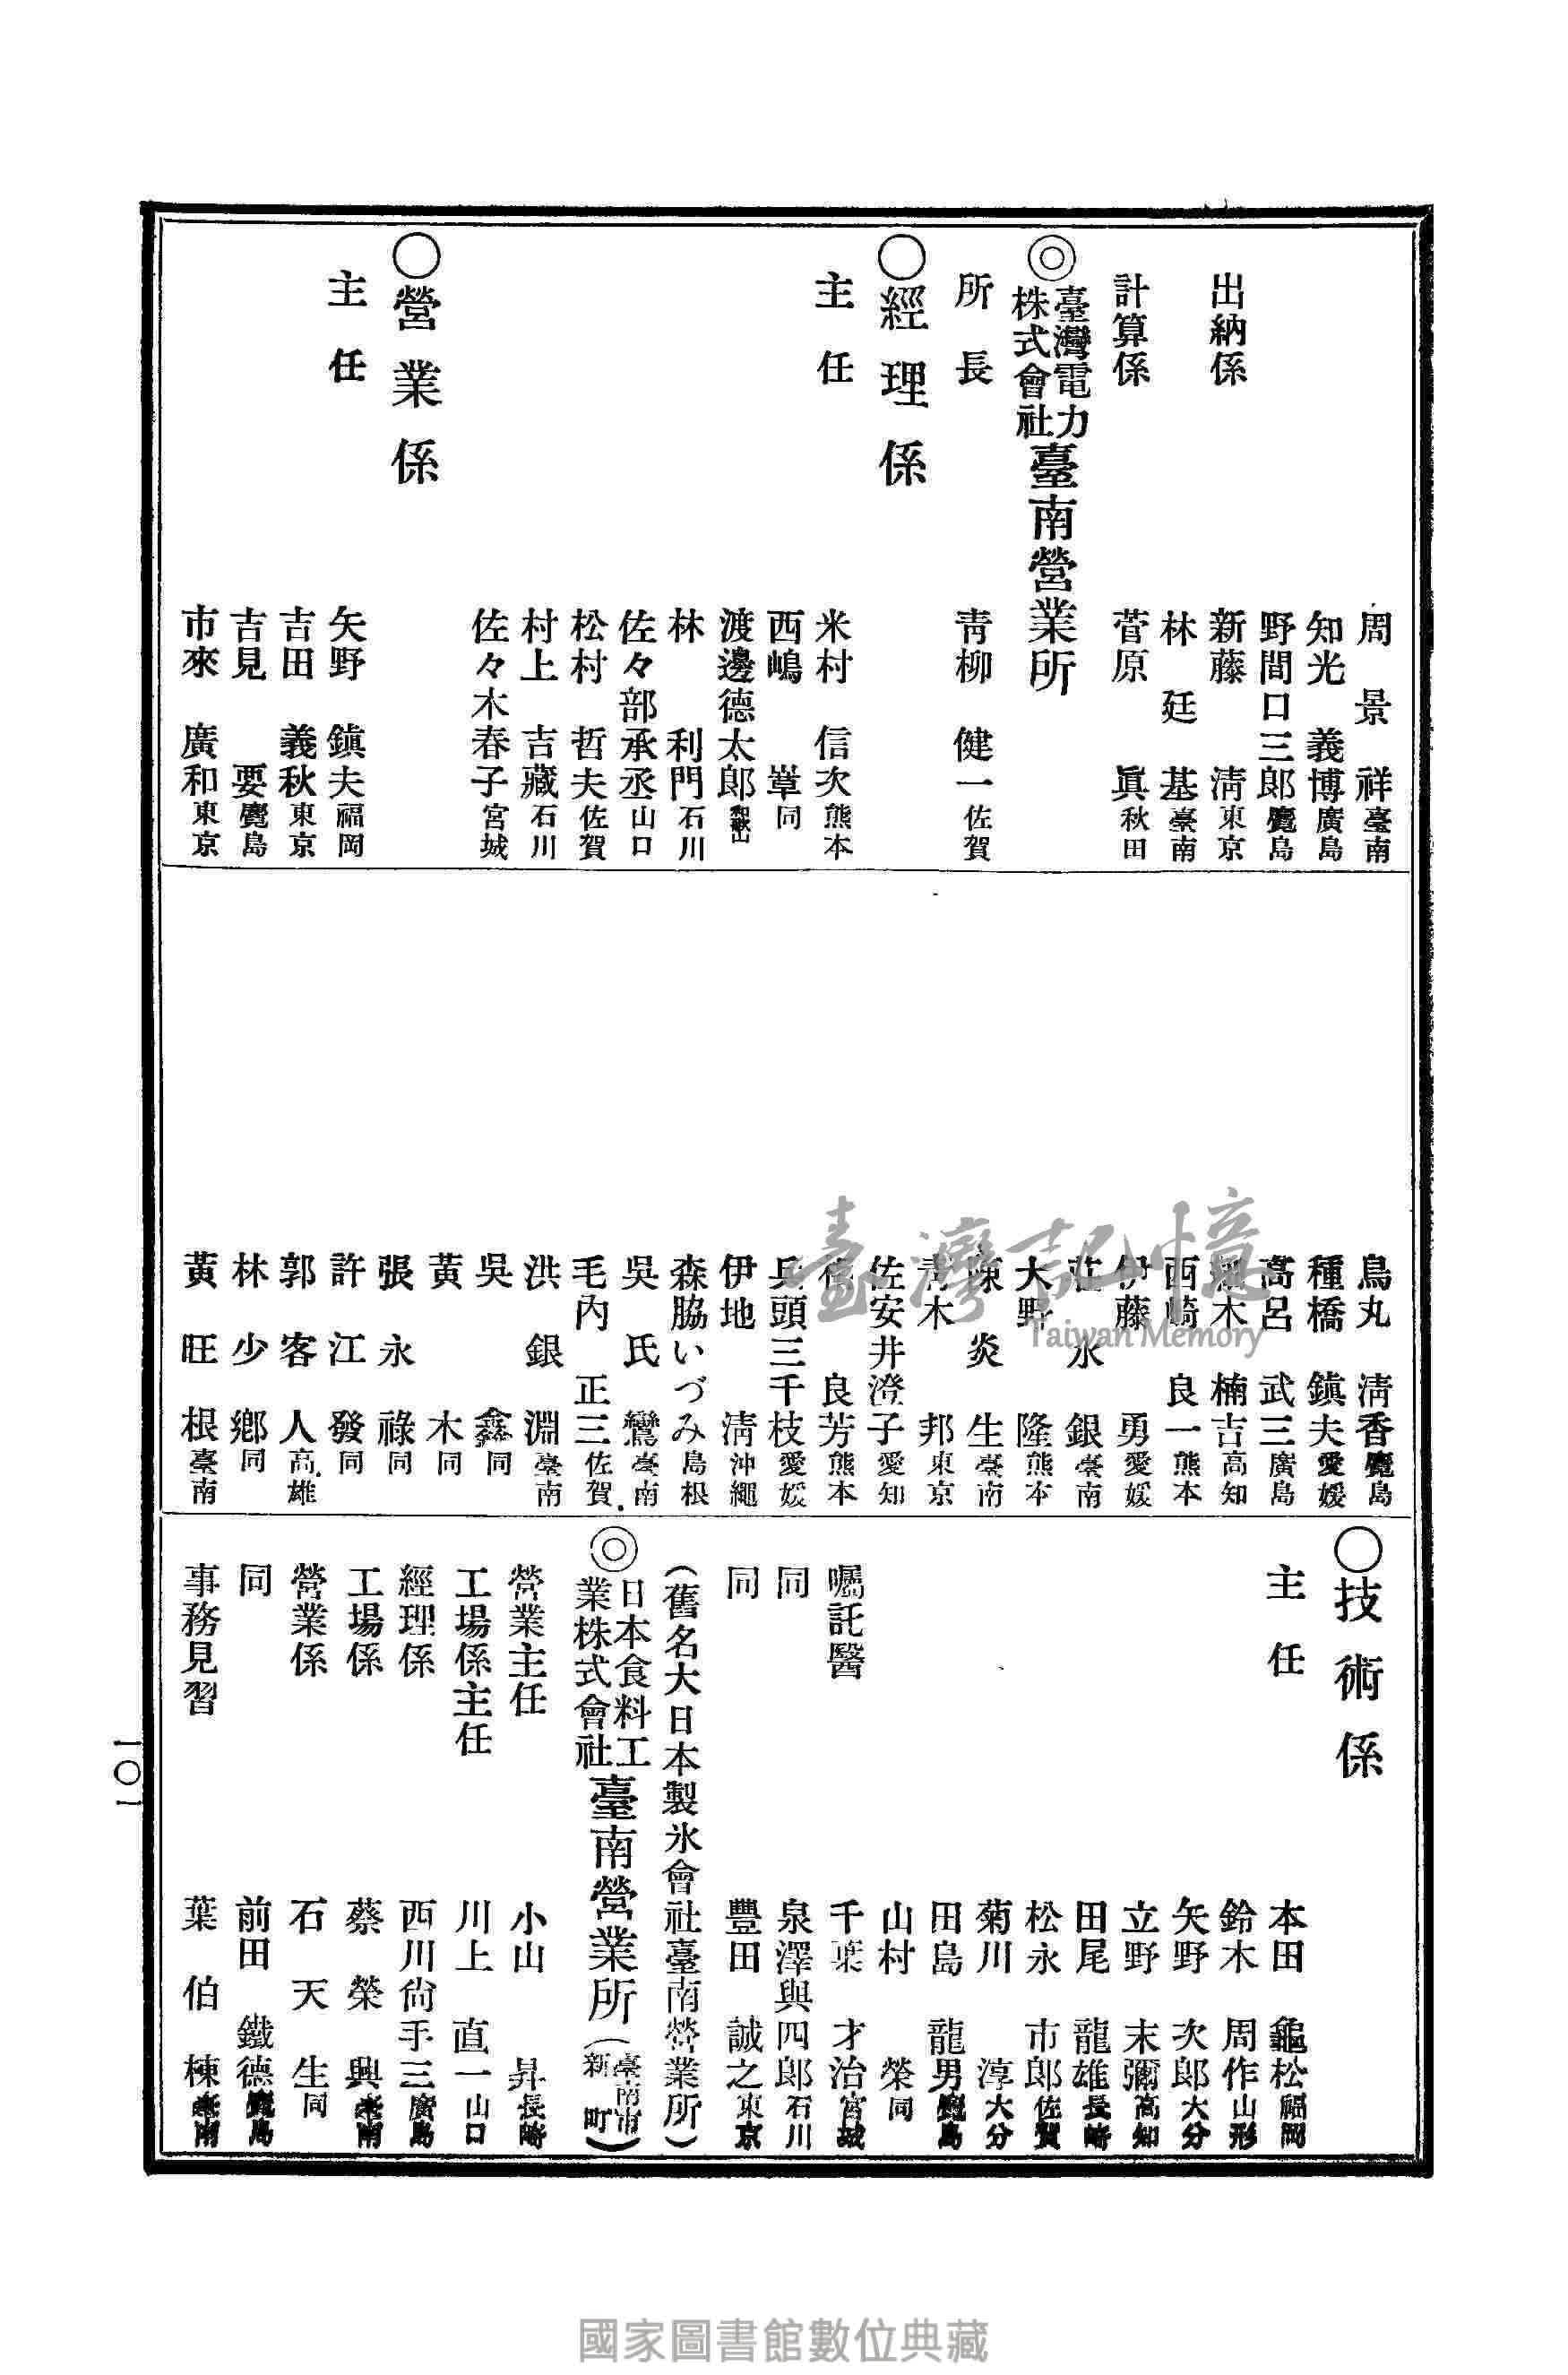 周景祥臺南
知光義博廣島
野間口三郎鹿兒島
出納係 新藤清東京
林廷基臺南
計算係 菅原眞秋田
◎臺灣電力株式會社臺南營業所
所長 青柳健一佐賀
○經理係
主任 米村信次熊本
西嶋 同
渡邊德太郎和歌山
林利門石川
佐々部承丞山口
松村哲夫佐賀
村上吉藏石川
佐々木春子宮城
○營業係
主任 矢野鎭夫福岡
吉田義秋東京
吉見要鹿兒島
市來廣和東京
鳥丸清香鹿兒島
種橋鎭夫愛媛
高呂武三廣島
木楠吉高知
西崎良一熊本
伊藤勇愛媛
莊永銀臺南
大野隆熊本
陳炎生臺南
青木邦東京
佐安井澄子愛知
良芳熊本
兵頭三千枝愛媛
伊地清沖繩
森脇いづみ島根
吳氏鶯臺南
毛內正三佐賀
洪銀淵臺南
吳鑫同
黃木同
張永祿同
許江發同
郭客人高雄
林少鄉同
黃旺根臺南
○技術係
主任 本田龜松福岡
鈴木周作山形
矢野次郎大分
立野末彌高知
田尾龍雄長崎
松永市郎佐賀
菊川淳大分
田島龍男鹿兒島
山村榮同
囑託醫 千葉才治宮城
同 泉澤與四郎石川
同 豐田誠之東京
(舊名大日本製氷會社臺南營業所)
◎日本食料工業株式會社臺南營業所(臺南市新町)
營業主任 小山昇長崎
工場係主任 川上直一山口
經理係 西川尙手三廣島
工場係 蔡榮興臺南
營業係 石天生同
同 前田鐵德鹿兒島
事務見習 葉伯棟臺南
一〇一
臺灣記憶
Taiwan Memory
國家圖書館數位典藏